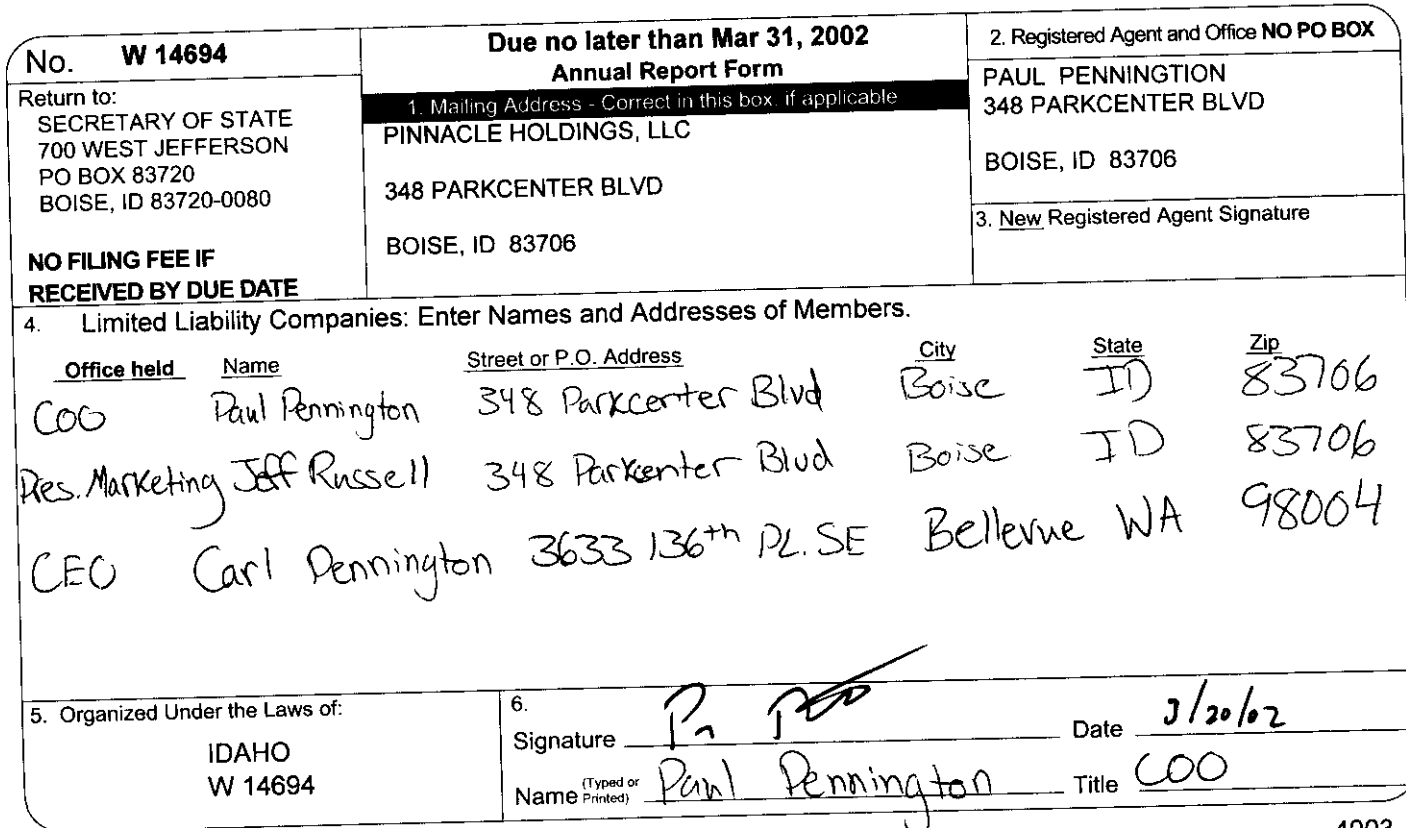 No. W 14694
Return to:
SECRETARY OF STATE
700 WEST JEFFERSON
PO BOX 83720
BOISE, ID 83720-0080
NO FILING FEE IF
RECEIVED BY DUE DATE
Due no later than Mar 31, 2002
Annual Report Form
1. Mailing Address - Correct in this box, if applicable
PINNACLE HOLDINGS, LLC
348 PARKCENTER BLVD
BOISE, ID 83706
2. Registered Agent and Office NO PO BOX
PAUL PENNINGTION
348 PARKCENTER BLVD
BOISE, ID 83706
3. New Registered Agent Signature
4. Limited Liability Companies: Enter Names and Addresses of Members.
Office held Name Street or P.O. Address City State Zip
COO Paul Pennington 348 Parkcenter Blvd Boise ID 83706
Pres. Marketing Jeff Russell 348 Parkcenter Blvd Boise ID 83706
CEO Carl Pennington 3633 136th PL. SE Bellevue WA 98004
5. Organized Under the Laws of:
IDAHO
W 14694
6.
Signature Date 3/20/02
Name (Typed or Printed) Paul Pennington Title COO